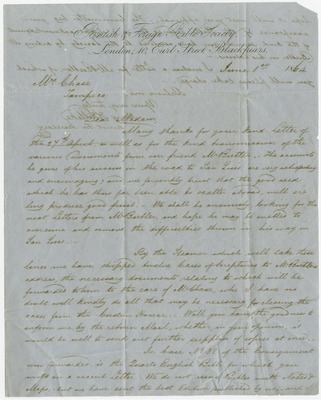 British & Foreign Bible Society
London, 10, Earl Street Blackfriars.
June 1st 1864
Mrs Chase
Tampico
Dear Madam
Many thanks for your kind letter of
the 27 April as well as for the kind transmission of the
various Documents from our friend Mr Butler. The accounts
he gives of his mission on the road to San Luis are very interesting
and encouraging; and we fervently trust that the good seed
which he has thus far been able to scatter there, will ere
long produce good fruit. We shall be anxiously looking for the
next letters from Mr Butler, and hope he may be enabled to
overcome and remove the difficulties thrown in his way in
San Luis.
By the Steamer which will take these
lines we have shipped twelve Cases of Scriptures to Mr Butler's
address, the necessary documents relating to which will be
forwarded to him to the care of Mr Chase, who I have no
doubt will kindly do all that may be necessary for clearing the
cases from the Custom House. Will you have the goodness to
inform me by the return Mail, whether, in your opinion, it
would be well to send out further supplies of copies at once.
In Case No of the Consignment
was forwarded in the Quarto English Bible for which you
sent in a recent letter. We do not send Bibles with Notes &
Maps, but we have sent the best Edition published by us, and